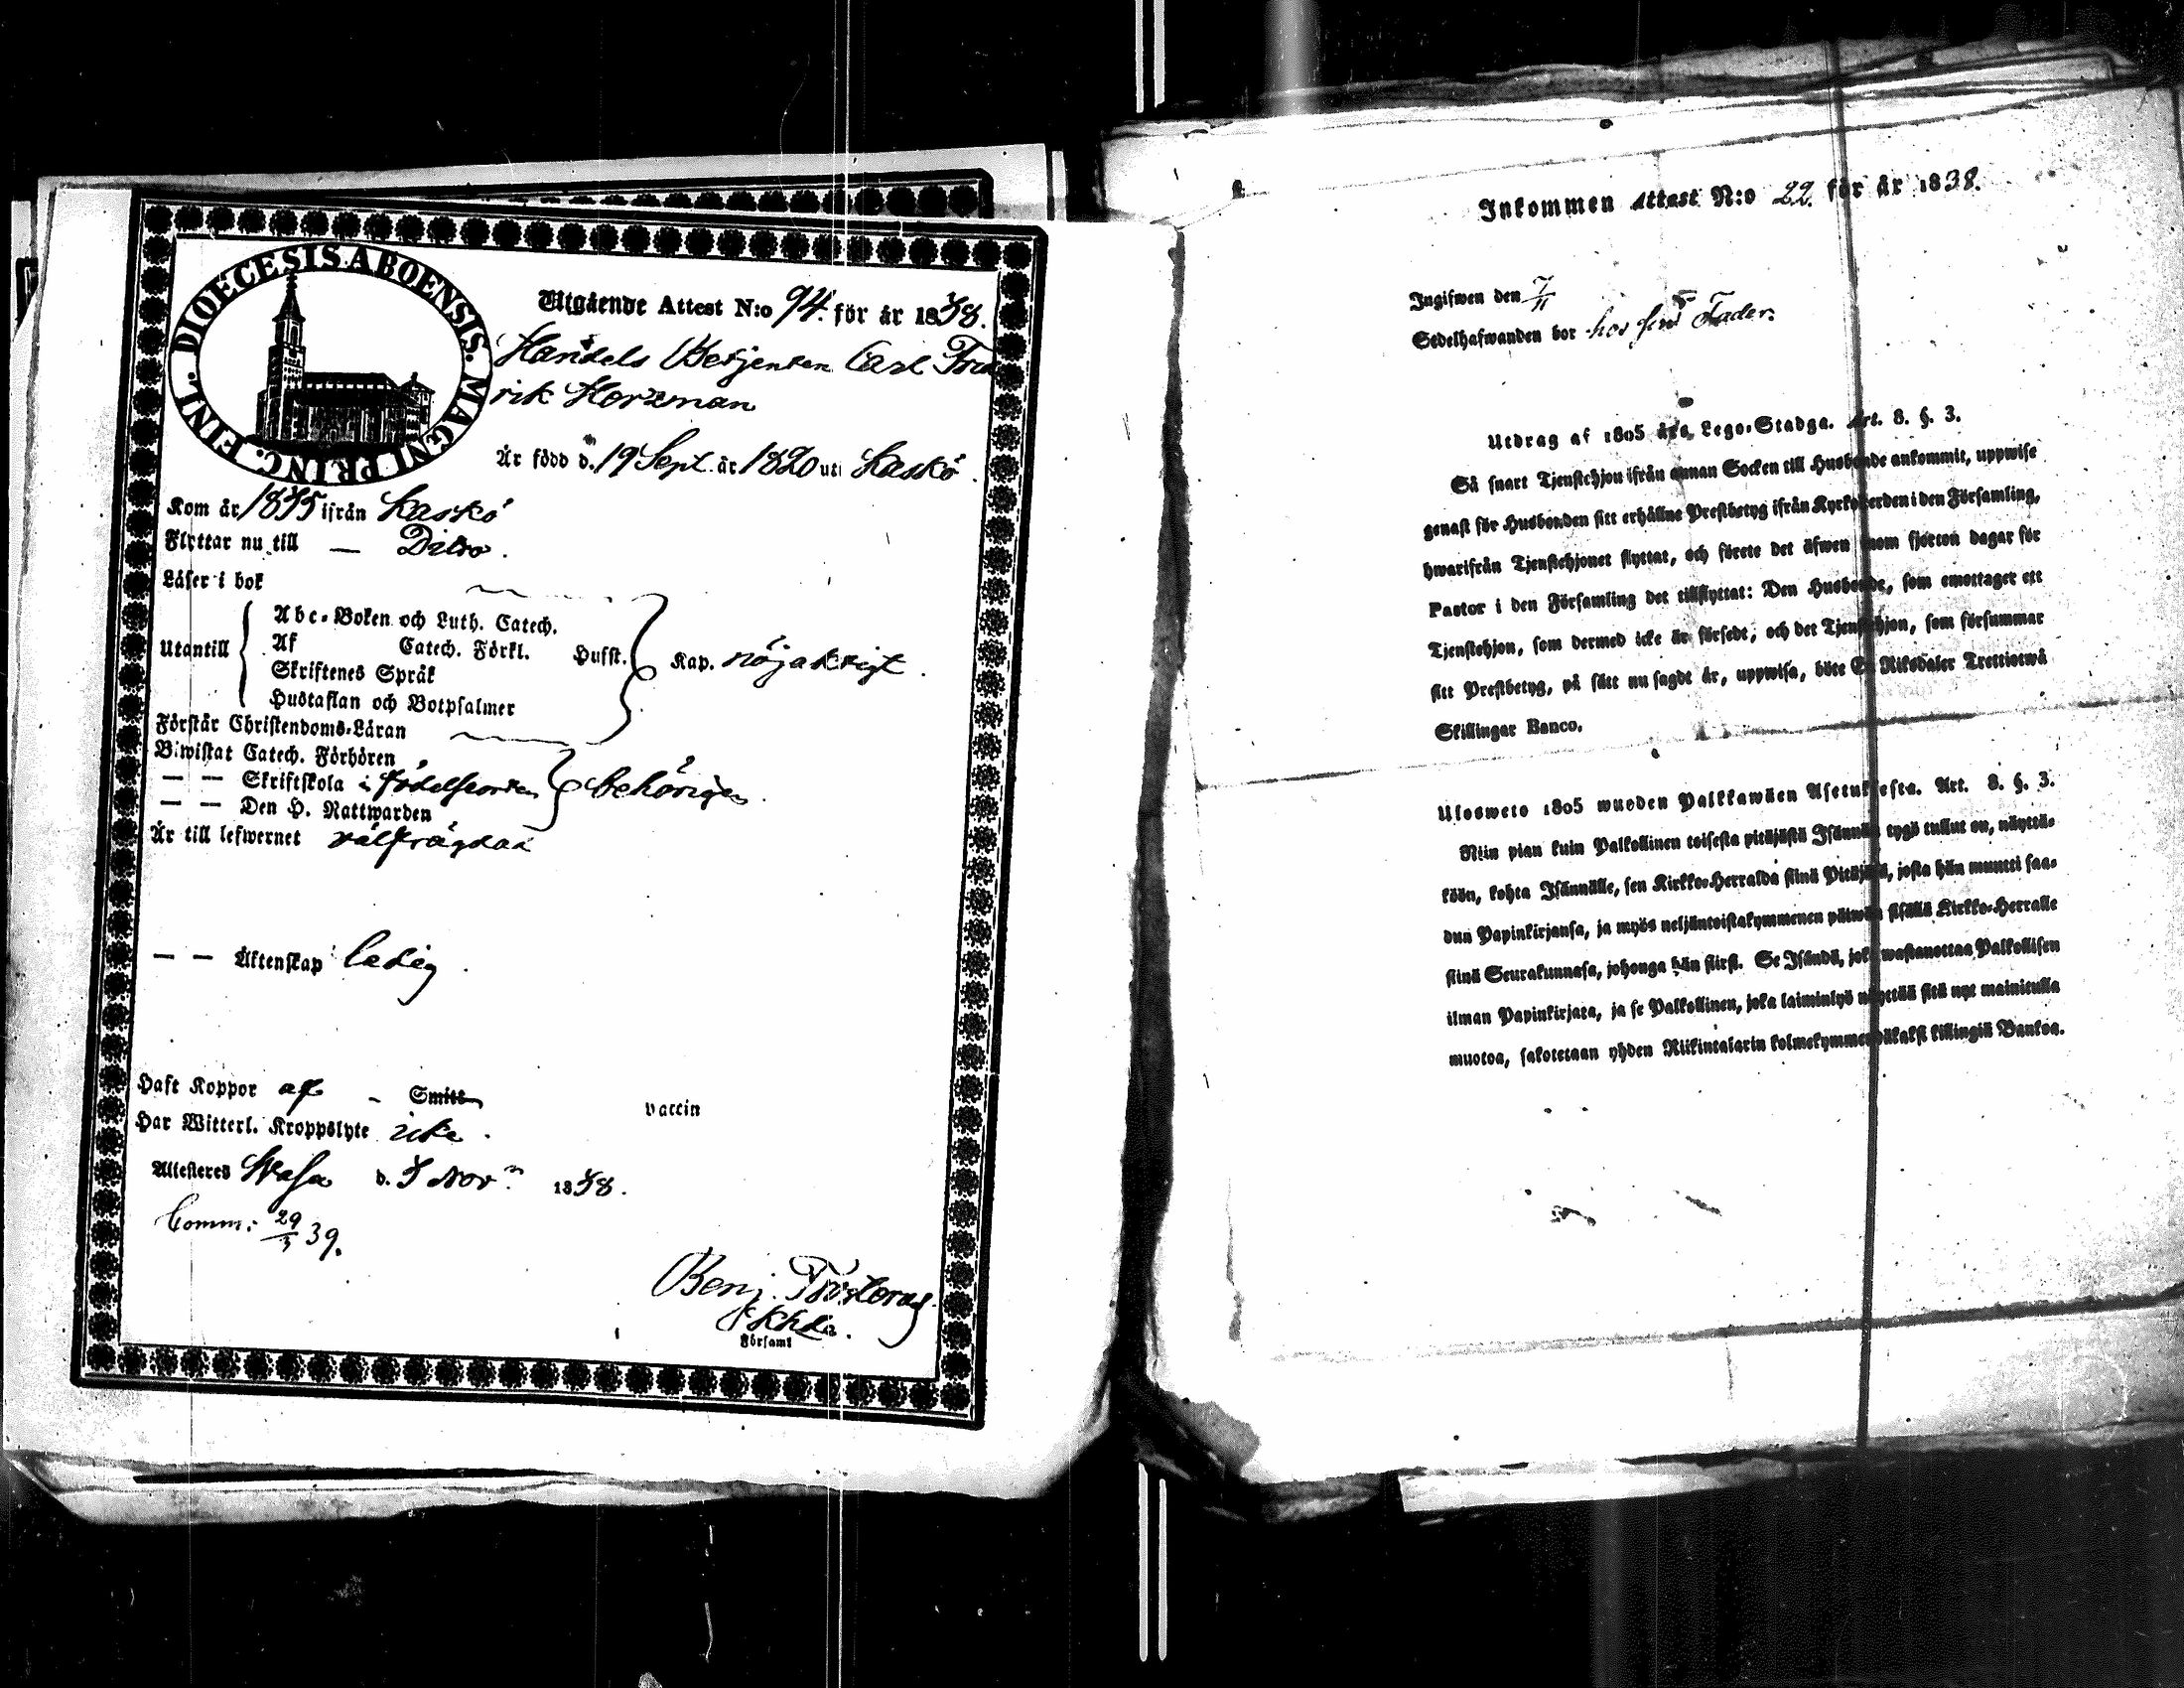 DIOECESIS ABOENSIS. MAGNI PRINC. FINL.
Utgående Attest N:o 94. för år 1838.
Handels Betjenten Carl Fred
rik Horzman
Är född d. 19 Sept. år 1820 uti Kaskö.
Kom år 1835 ifrån Kaskö
Flyttar nu till — Ditto.
Läser i bok
Utantill
Abc-Boken och Luth. Catech.
Af Catech. Förkl. Hufst. Kap. nöjaktigt.
Skriftenes Språk
Hustaflan och Botpsalmer
Förstår Christendoms-Läran
Biwistat Catech. Förhören
— — Skriftskola i födelseorten behörigen.
— — Den H. Nattwarden
Är till lefwernet välfrägdad
— — Äktenskap ledig.
Haft Koppor af - Smitt vaccin
Har Witterl. Kroppslyte icke.
Attesteres Wasa d. 5 Nov. 1838.
Comm: 29/3 39.
Benj.
Församl
Inkommen Attest N:o 22. för år 1838.
Ingifwen den 7/11
Sedelhafwanden bor hos sin Fader.
Utdrag af 1805 års Lego-Stadga. Art. 8. §. 3.
Så snart Tjenstehjon ifrån annan Socken till Husbonde ankommit, uppwise
genast för Husbonden sitt erhållne Prestbetyg ifrån Kyrkoherden i den Församling,
hwarifrån Tjenstehjonet flyttat, och förete det äfwen inom fjorton dagar för
Pastor i den Församling det tillflyttat: Den Husbonde, som emottager ett
Tjenstehjon, som dermed icke är försedt, och det Tjenstehjon, som försummar
sitt Prestbetyg, på sätt nu sagdt är, uppwisa, böte En Riksdaler Trettiotwå
Skillingar Banco.
Ulosweto 1805 wuoden Palkkawäen Asetuksesta. Art. 8. §. 3.
Niin pian kuin Palkollinen toisesta pitäjästä Isännän tygö tullut on, näyttä-
köön, kohta Isännälle, sen Kirkko-Herralda siinä Pitäjäsä, josta hän muutti saa-
dun Papinkirjansa, ja myös neljäntoistakymmenen päiwän sisällä Kirkko-Herralle
siinä Seurakunnasa, johonga hän siirsi. Se Isändä, joka wastanottaa Palkollisen
ilman Papinkirjata, ja se Palkollinen, joka laiminlyö näyttää sitä nyt mainitulla
muotoa, sakotetaan yhden Riikintalarin kolmekymmendäkaksi killingiä Bankoa.